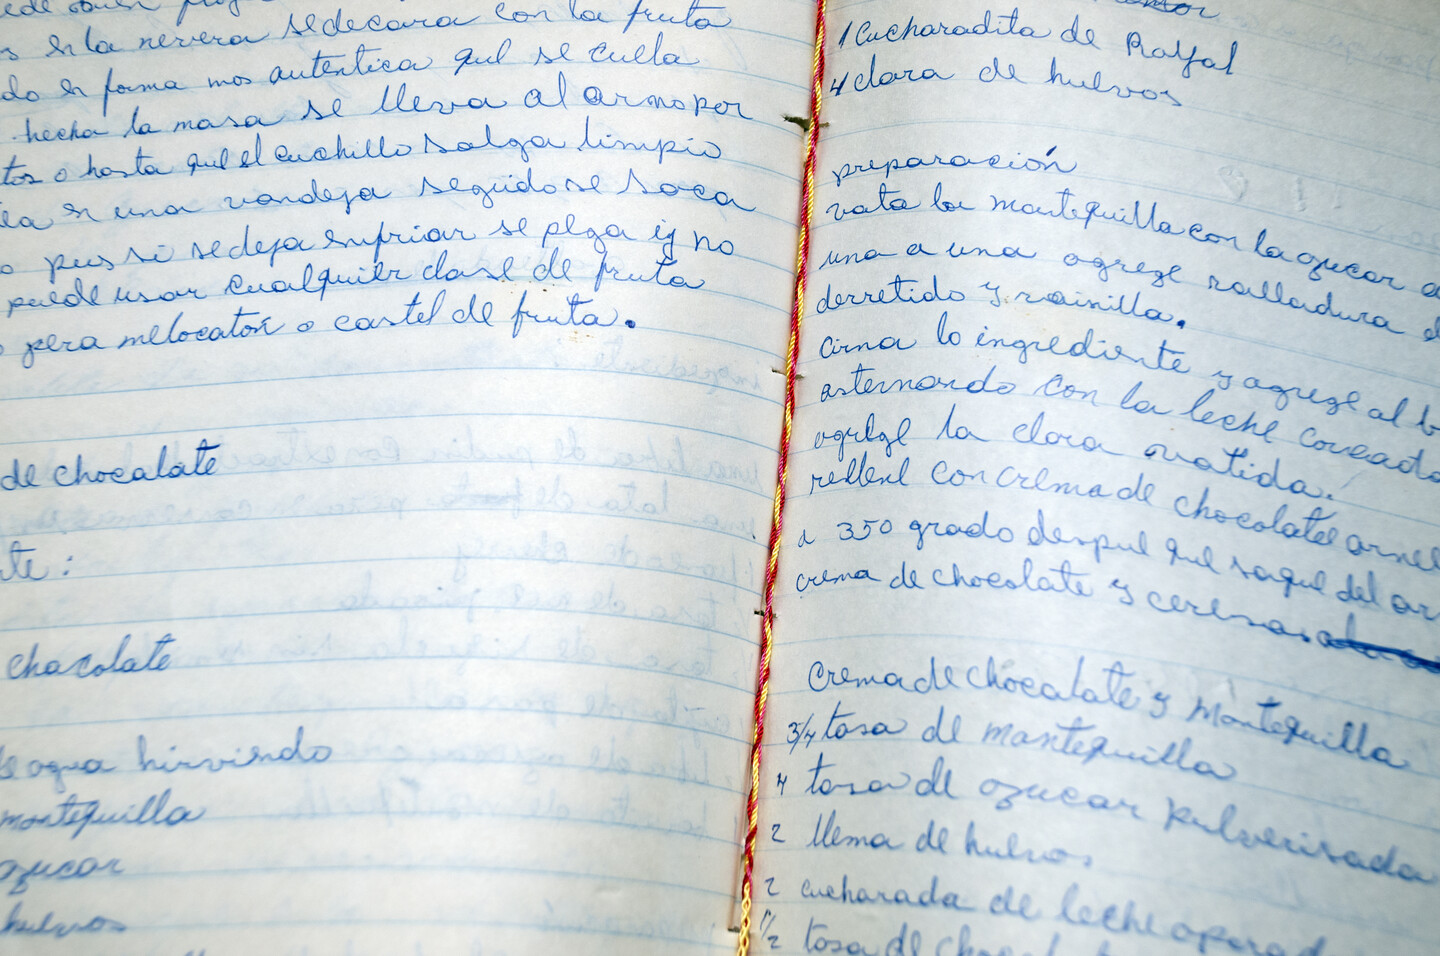 s en la nevera se decara con la fruta
do en forma mas autentica que se cuella
hecha la masa se lleva al arno por
tos o hasta que el cuchillo salga limpio
ea en una vandeja seguido se saca
o pues si se deja enfriar se plga y no
puede usar cualquier clase de fruta
o pera melocaton o castel de fruta.
de chocalate
te:
chacolate
de agua hirviendo
mantequilla
azucar
huevos
1 Cucharadita de Rayal
4 clara de huevos
preparación
vata la mantequilla con la azucar
una a una agrege ralladura
derretido y vainilla.
cirna lo ingrediente y agrege al b
asternando con la leche coreada
agrege la clara vatida.
rellene con crema de chocolate arnee
a 350 grado despue que saque del or
crema de chocolate y ceresas
Crema de chocalate y mantequilla
3/4 tasa de mantequilla
4 tasa de azucar pulverisada
2 llema de huevos
2 cucharada de leche aparada
1 1/2 tasa de choc